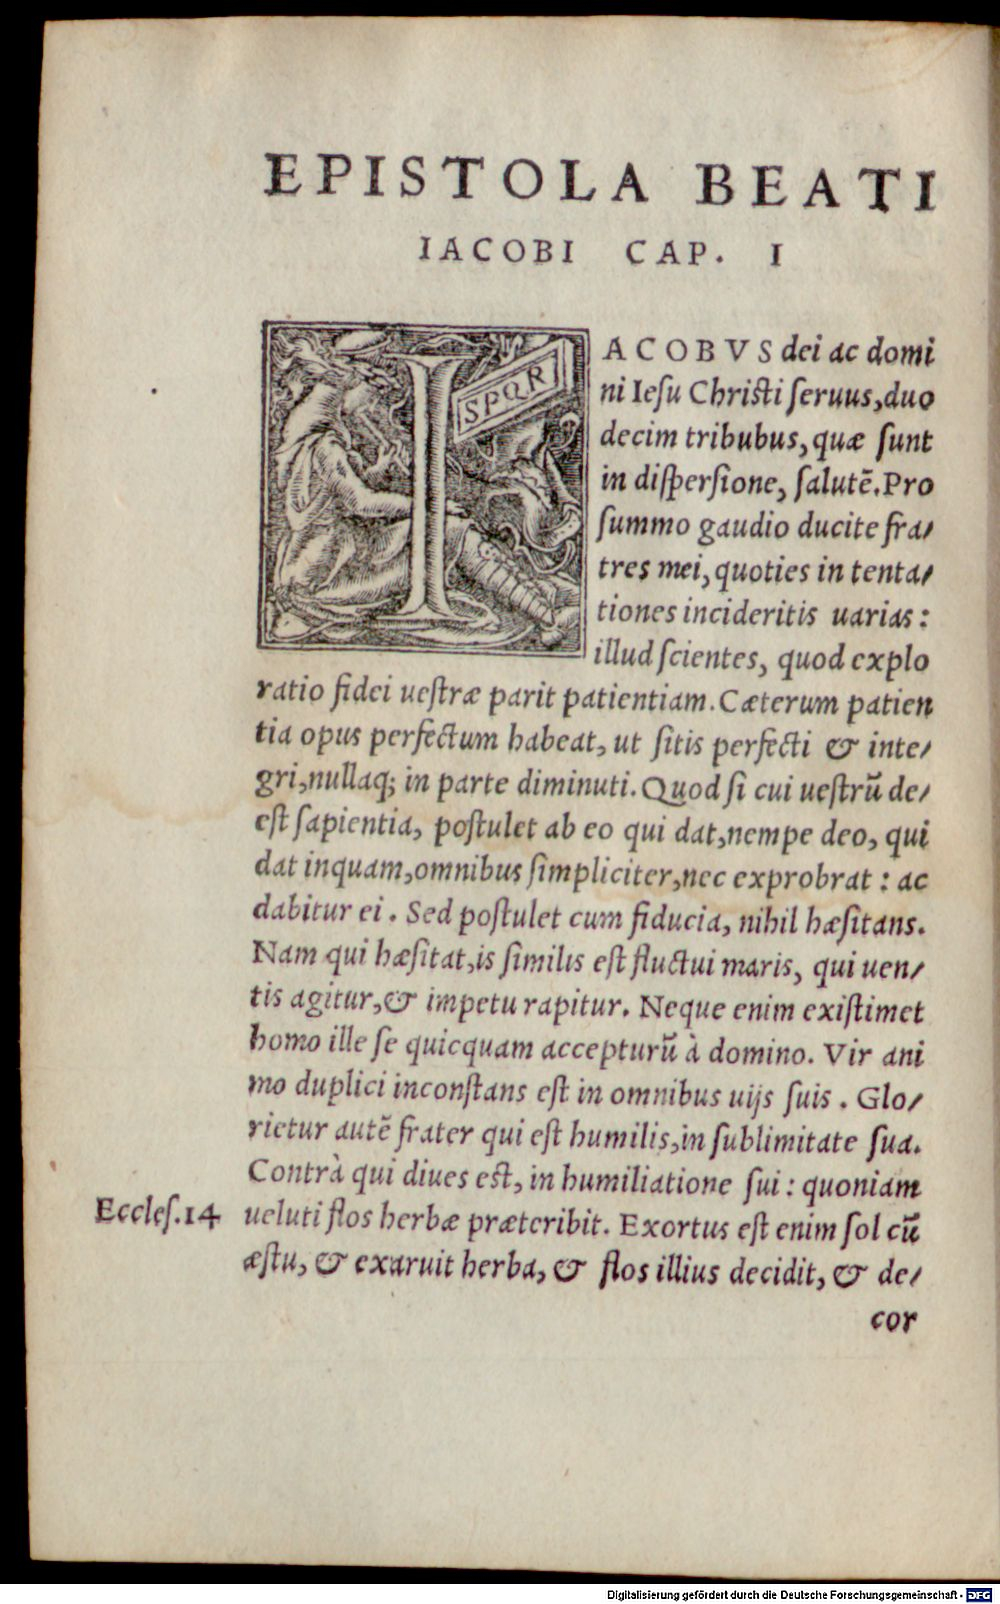 EPISTOLA BEATI
IACOBI CAP. I
SPQR
IACOBVS dei ac domi
ni Iesu Christi seruus, duo
decim tribubus, quæ sunt
in dispersione, salutē. Pro
summo gaudio ducite fra/
tres mei, quoties in tenta/
tiones incideritis uarias:
illud scientes, quod explo
ratio fidei uestræ parit patientiam. Cæterum patien
tia opus perfectum habeat, ut sitis perfecti & inte/
gri, nullaq; in parte diminuti. Quod si cui uestrū de/
est sapientia, postulet ab eo qui dat, nempe deo, qui
dat inquam, omnibus simpliciter, nec exprobrat: ac
dabitur ei. Sed postulet cum fiducia, nihil hæsitans.
Nam qui hæsitat, is similis est fluctui maris, qui uen/
tis agitur, & impetu rapitur. Neque enim existimet
homo ille se quicquam accepturū à domino. Vir ani
mo duplici inconstans est in omnibus uijs suis. Glo/
rietur autē frater qui est humilis, in sublimitate sua.
Contrà qui diues est, in humiliatione sui: quoniam
Eccles. 14 ueluti flos herbæ præteribit. Exortus est enim sol cū
æstu, & exaruit herba, & flos illius decidit, & de/
cor
Digitalisierung gefördert durch die Deutsche Forschungsgemeinschaft - DFG